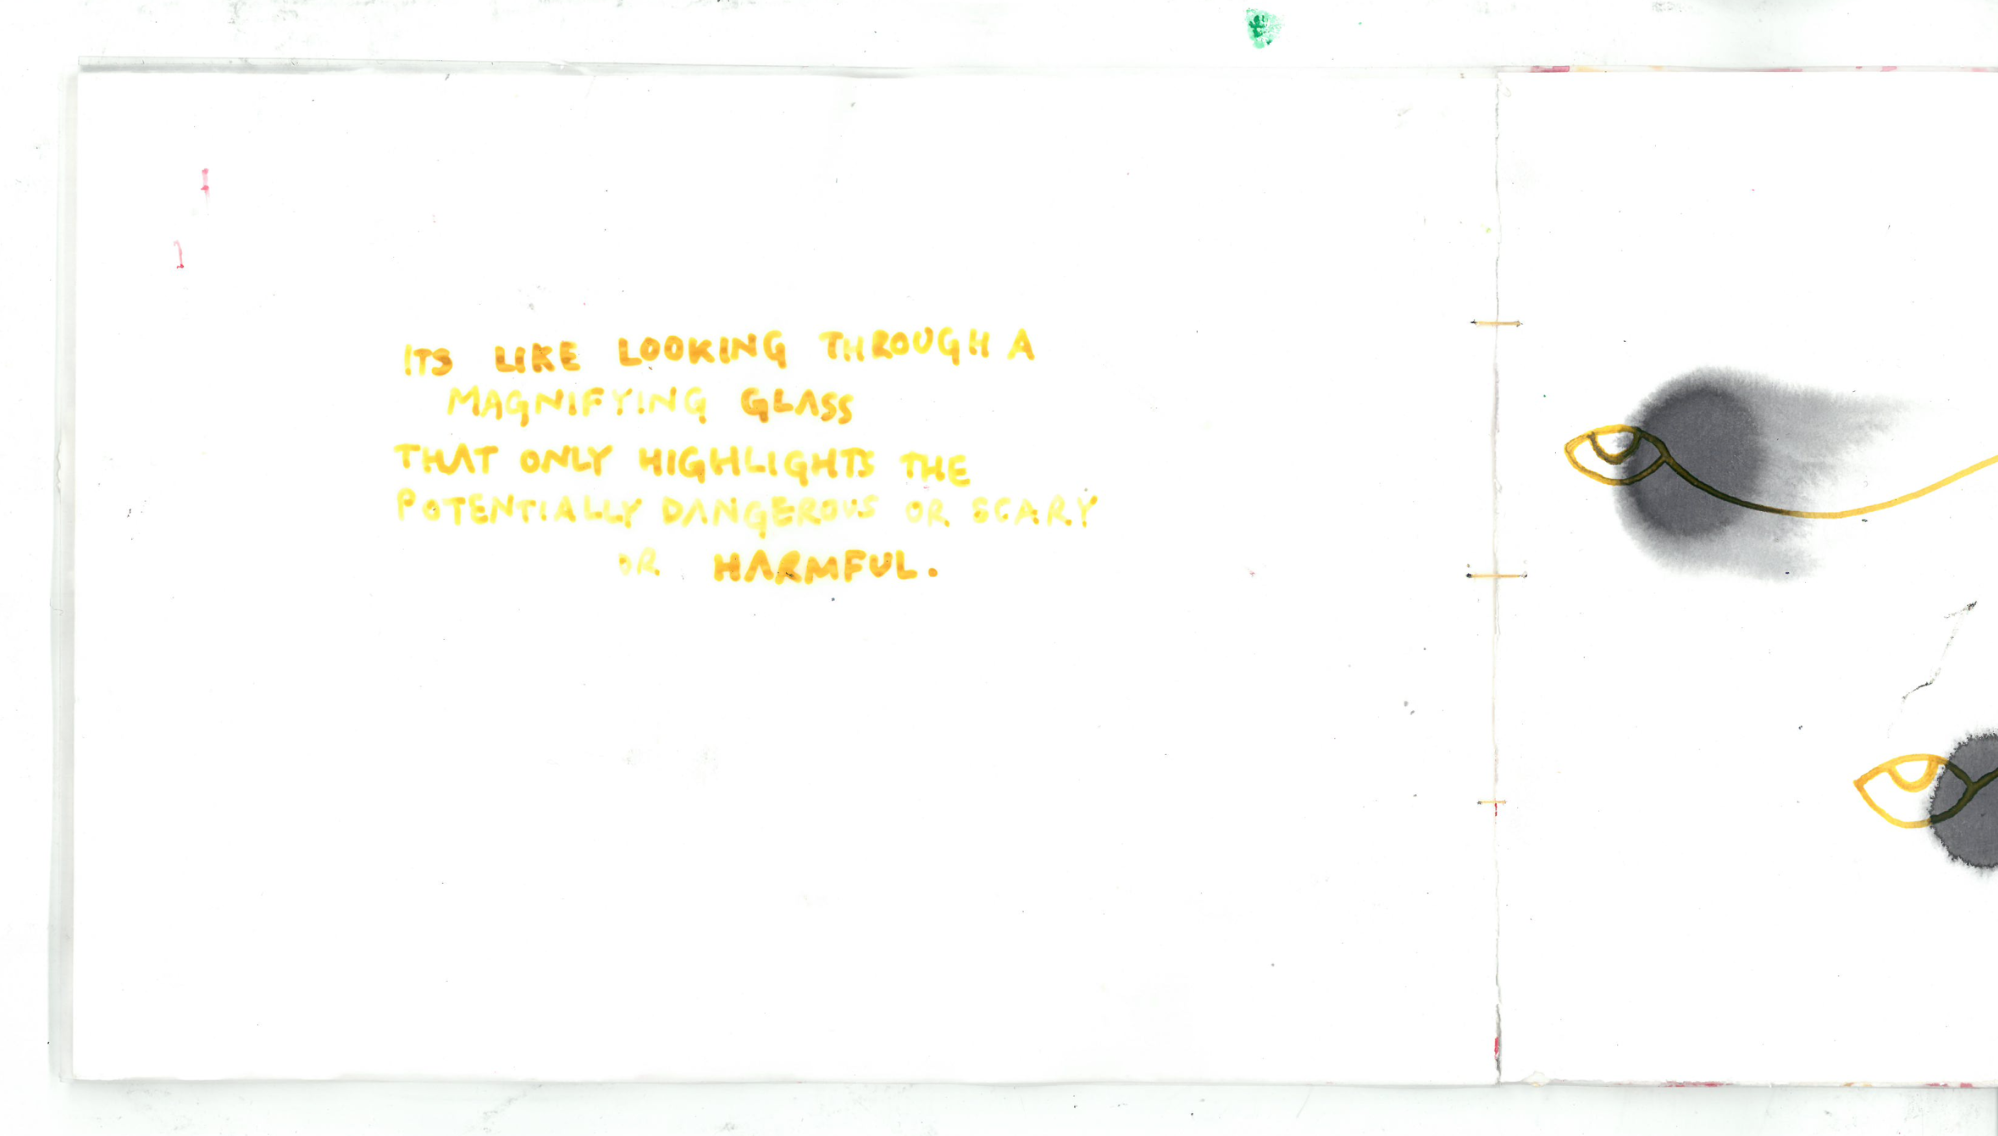 ITS LIKE LOOKING THROUGH A
MAGNIFYING GLASS
THAT ONLY HIGHLIGHTS THE
POTENTIALLY DANGEROUS OR SCARY
OR HARMFUL.